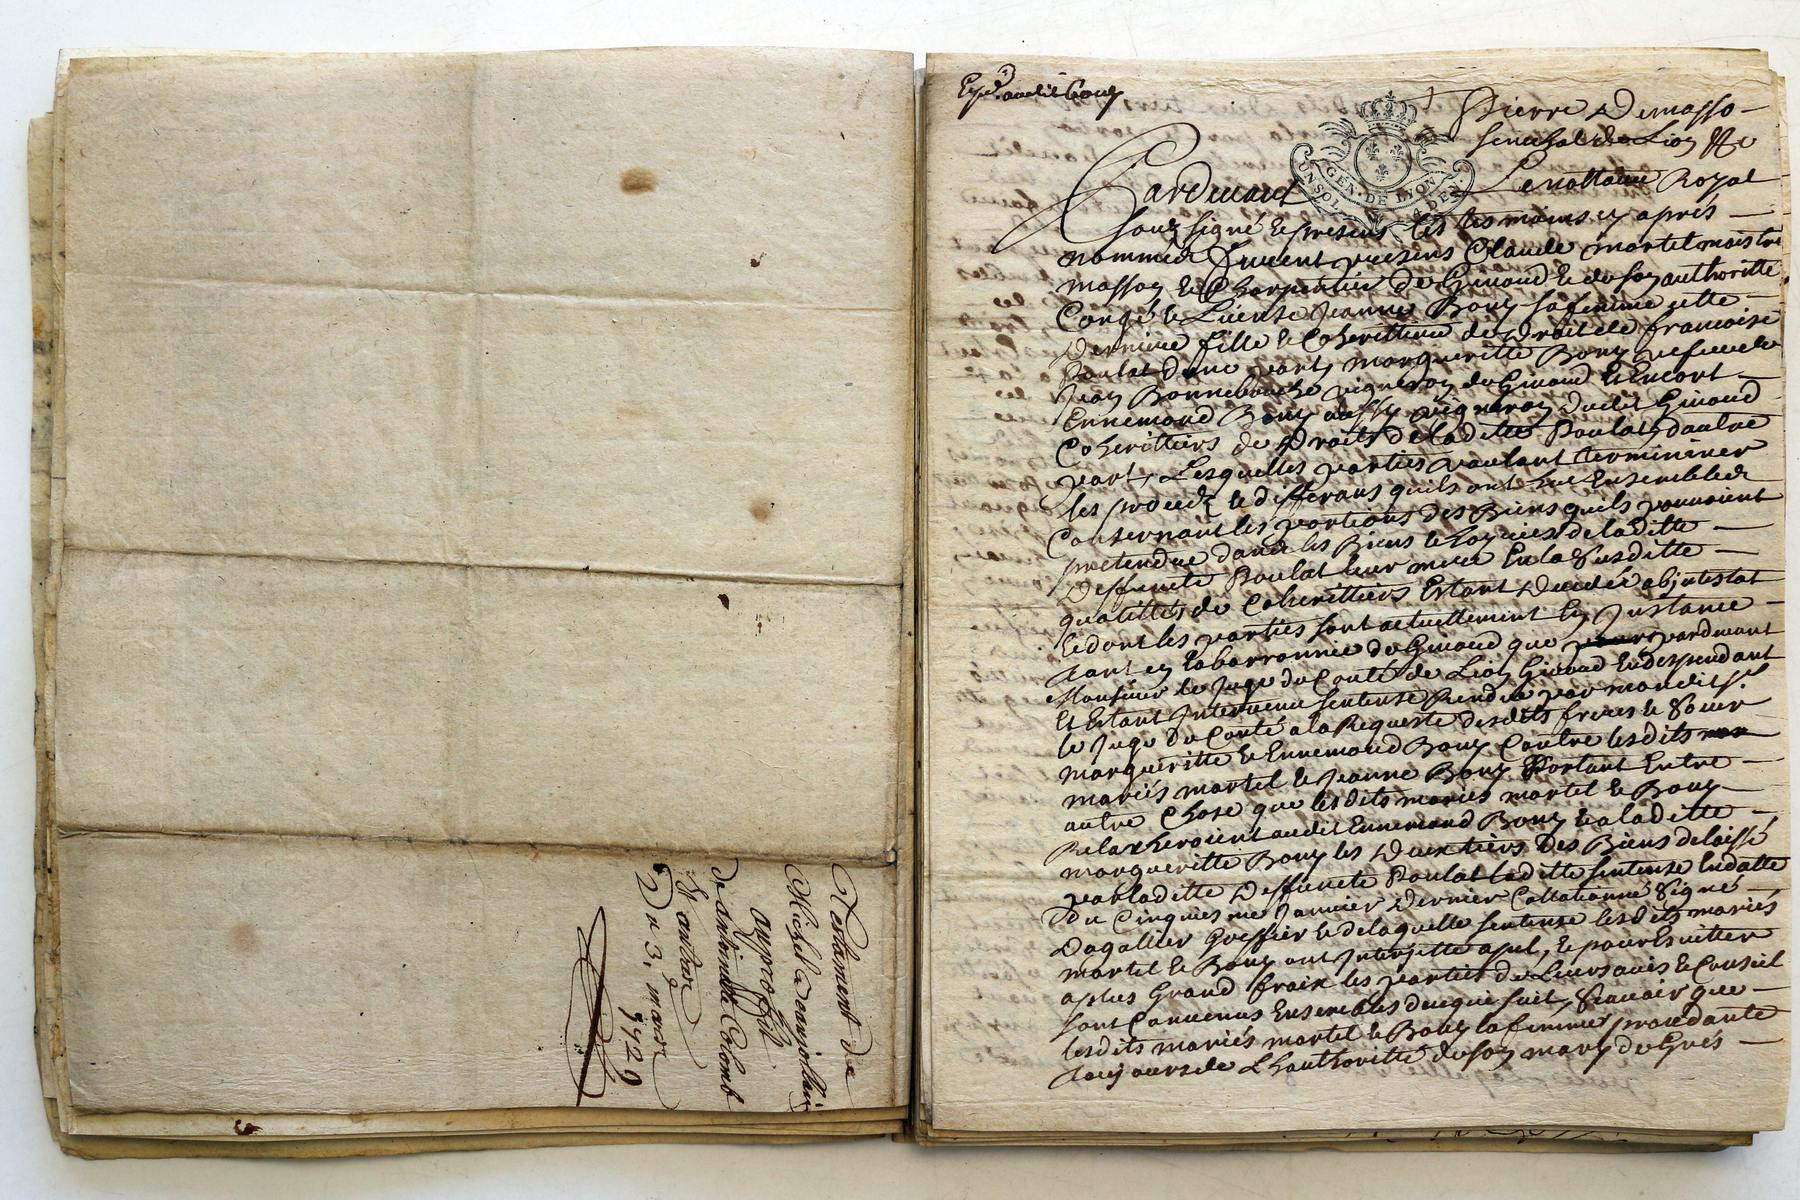 Testament de
Michel
au proffit
de antoinette Colomb
St andre
Du 3. mars
1729
Expd. audit Bouy
Pierre Demasso
senechal de Lion &c
GEN. DE LYON
Pardevant Le nottaire Royal
soubsigné & presens les tesmoins cy aprés
nommés furent presens Claude martel maistre
masson & Charpentier de Givord & de son authoritté
Congé & License Jeanne Bouy sa femme cette
derniere fille & Coherittiere de droit de francoise
Poulat d'une part, margueritte Bouy vefve de
Jean Bonnebouche vigneron de Givord & Encort
Ennemond Bouy aussy vigneron dudit Givord
Coherittiers de droits de laditte Poulat, d'autre
part, Lesquelles parties voulant terminer
les procedz & differans quils ont Eue Ensembles
Consernant les portions des Biens quils pouvoient
pretendre dans les Biens & hoyries de laditte
deffuncte Poulat leur mere En la Susditte
qualittés de Coherittiers Estant decedée abjntestat
& dont les parties sont actuellement En Jnstance
tant en la barronnie de Givord que pardevant
Monsieur le Juge du Conté de Lion Givord En despendant
Et Estant Jntervenu sentense Rendue par mondit sr.
le Juge du Conté a la Requeste desdits freres & Soeur
margueritte & Ennemond Bouy Contre lesdits
mariés martel & Jeanne Bouy Portant Entre
autre Chose que lesdits mariés martel & Bouy
Relacheroient audit Ennemond Bouy & a laditte
margueritte Bouy les deux tiers des Biens delaissé
par laditte deffuncte Poulat laditte sentense En datte
du Cinquiesme Janvier dernier Collationné Signé
Dagallier Greffier & de laquelle sentense lesdits mariés
martel & Bouy ont Jnterjette apel, & pour Esvitter
a plus Grand fraix les parties de Leurs avis & Conseil
sont Convenus Ensembles de ce qui suit, Scavoir que
lesdits mariés martel & Bouy la femme procedante
toujours de L'hauthoritté de son mary de Gres